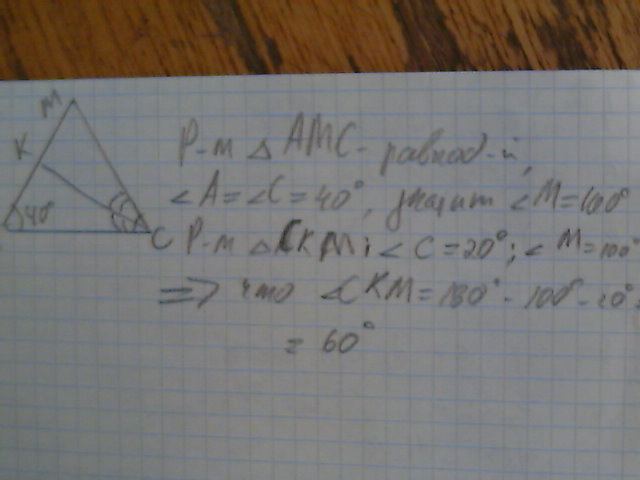 M
K
40°
C
Р-м △ AMC - равнод-й,
∠A=∠C=40°, значит ∠M=100°
Р-м △CKM; ∠C=20°; ∠M=100°
=> что ∠CKM=180°-100°-20°=
= 60°